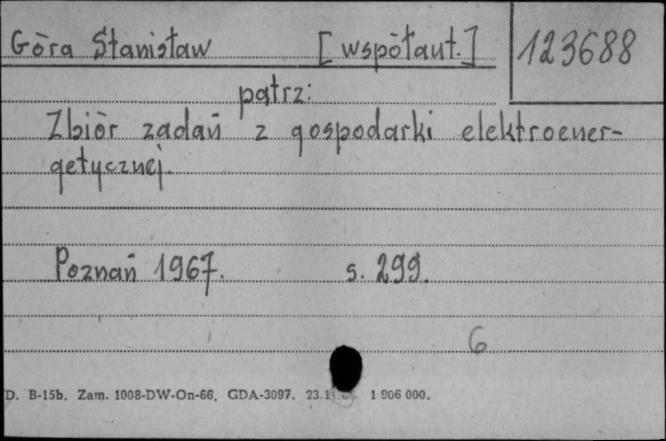 Góra Stanisław [współaut.] 123688
patrz:
Zbiór zadań z gospodarki elektroener-
getycznej.
Poznań 1967. s. 299.
6
D. B-15b. Zam. 1008-DW-On-66. GDA-3097. 1 906 000.